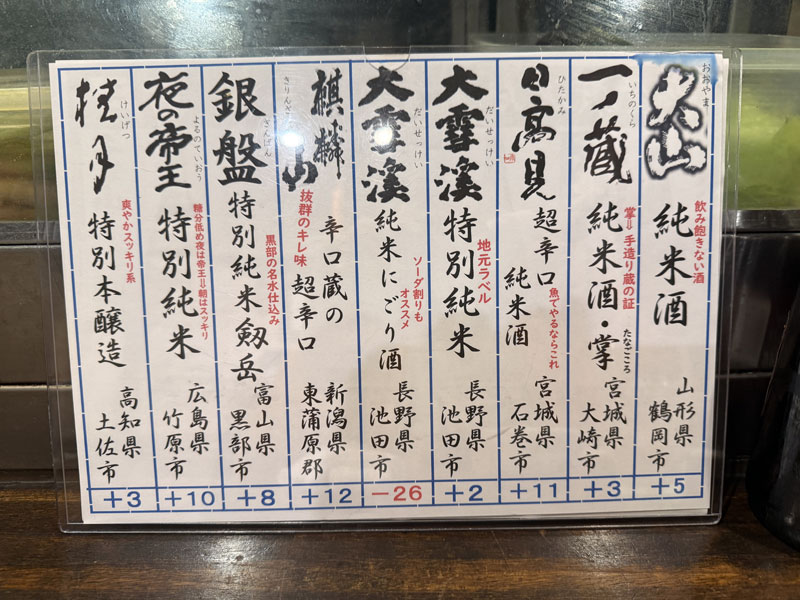 大山
おおやま
飲み飽きない酒
純米酒
山形県
鶴岡市
+5
一ノ蔵
いちのくら
掌⇒手造り蔵の証
純米酒・掌
たなごころ
宮城県
大崎市
+3
日高見
ひたかみ
魚でやるならこれ
超辛口
純米酒
宮城県
石巻市
+11
大雪渓
だいせっけい
地元ラベル
特別純米
長野県
池田市
+2
大雪渓
だいせっけい
ソーダ割りも
オススメ
純米にごり酒
長野県
池田市
-26
麒麟山
きりんざん
抜群のキレ味
辛口蔵の
超辛口
新潟県
東蒲原郡
+12
銀盤
ぎんばん
黒部の名水仕込み
特別純米剱岳
富山県
黒部市
+8
夜の帝王
よるのていおう
糖分低め夜は帝王⇒朝はスッキリ
特別純米
広島県
竹原市
+10
桂月
けいげつ
爽やかスッキリ系
特別本醸造
高知県
土佐市
+3